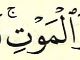 ٱلْمَوْتِ ۚ